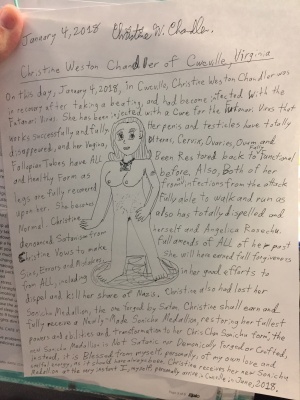 January 4, 2018 Christine W. Chandler.
Christine Weston Chandler of Cwcville, Virginia
On this day, January 4, 2018, in Cwcville, Christine Weston Chandler was
in recovery after taking a beating, and had become injected with the
Futanari Virus. She has been injected with a Cure for the Futanari Virus that
works successfully and fully. Her penis and testicles have totally
disappeared, and her Vagina, Uterus, Cervix, Ovaries, Ovum and
Fallopian Tubes have ALL Been Restored back to Functional
and Healthy Form as before. Also, Both of her
legs are fully recovered from infections from the attack
upon her. She becomes Fully able to walk and run as
Normal. Christine also has totally dispelled and
denounced Satanism from herself and Angelica Rosechu.
Christine Vows to make full amends of ALL of her past
Sins, Errors and Mistakes She will have earned full forgiveness
from ALL, including in her good efforts to
dispel and kill her share of Nazis. Christine also had lost her
Sonichu Medallion, the one forged by Satan. Christine shall earn and
fully receive a Newly-Made Sonichu Medallion, restoring her fullest
powers and abilities and transformation to her Chris Chan Sonichu form; the
new Sonichu Medallion is Not Satanic nor Demonically Forged or Crafted,
instead, it is Blessed from myself, personally, of my own love and
energy, as it should have always been. Christine receives her new Sonichu
Medallion at the very instant I, myself, personally arrive in Cwcville in June, 2018.